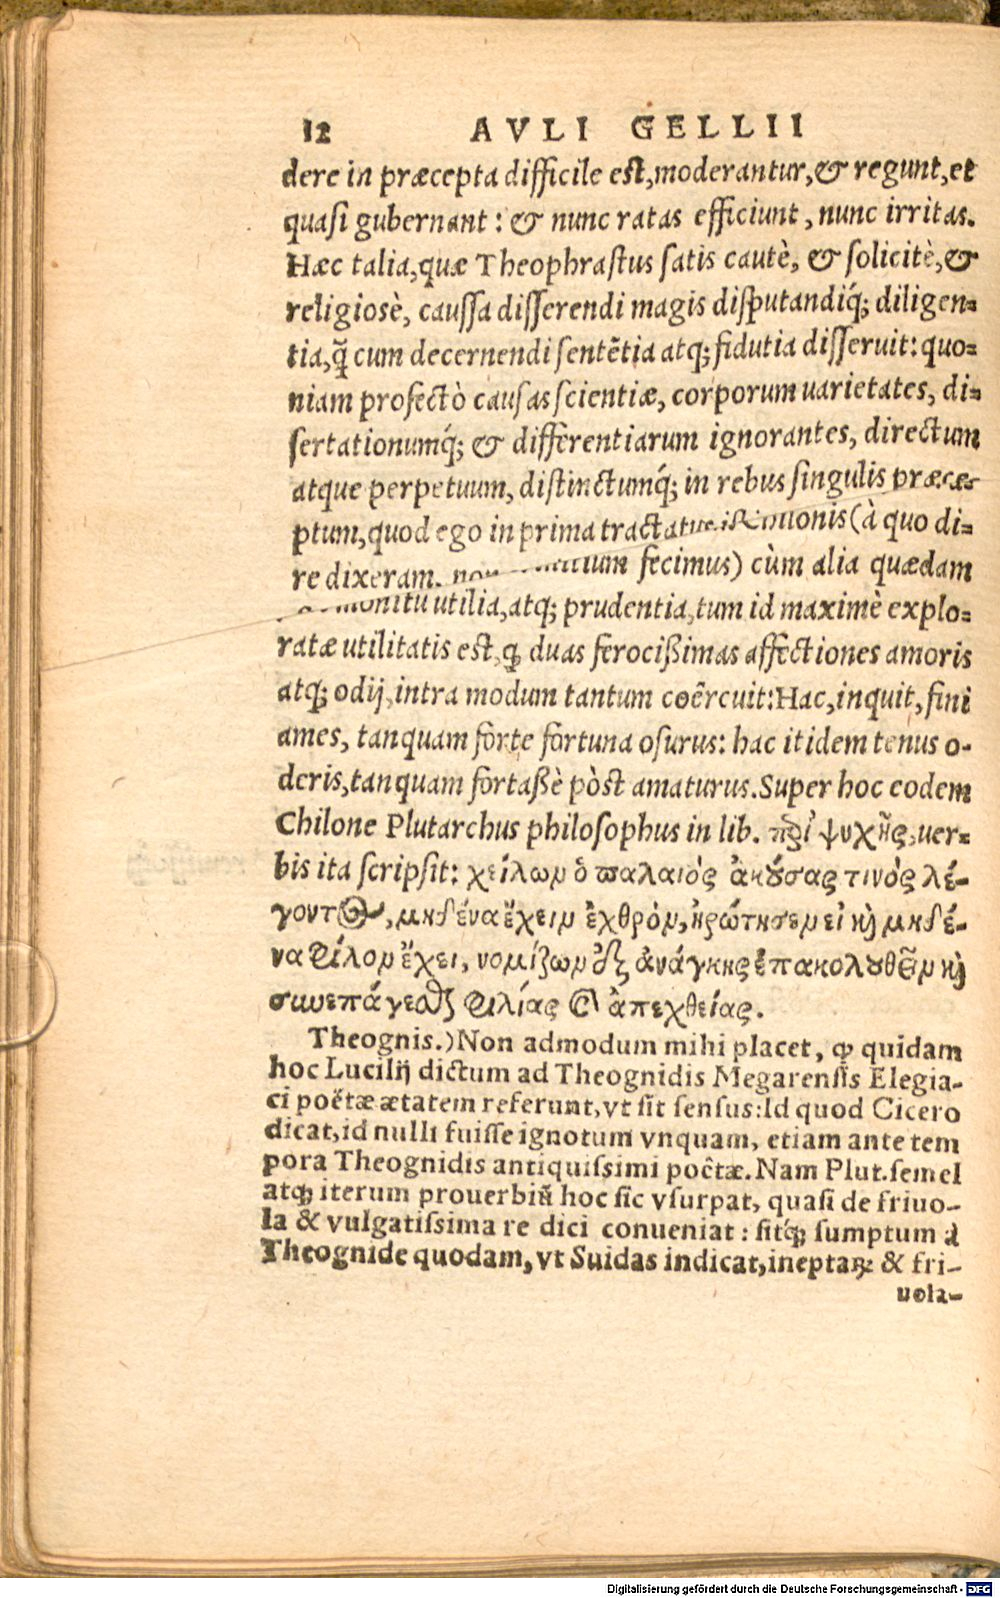 12 AVLI GELLII
dere in præcepta difficile est, moderantur, & regunt, et
quasi gubernant: & nunc ratas efficiunt, nunc irritas.
Hæc talia, quæ Theophrastus satis cautè, & solicitè, &
religiosè, caussa disserendi magis disputandiq́; diligen-
tia, q̃ cum decernendi sentẽtia atq; fidutia disseruit: quo-
niam profectò causas scientiæ, corporum uarietates, di-
sertationumq́; & differentiarum ignorantes, directum
atque perpetuum, distinctumq́; in rebus singulis præce-
ptum, quod ego in prima (à quo di-
re dixeram. fecimus) cùm alia quædam
utilia, atq; prudentia, tum id maximè explo-
ratæ utilitatis est, ꝙ duas ferocißimas affectiones amoris
atq; odij, intra modum tantum coërcuit: Hac, inquit, fini
ames, tanquam forte fortuna osurus: hac itidem tenus o-
deris, tanquam fortaßè pòst amaturus. Super hoc eodem
Chilone Plutarchus philosophus in lib. περὶ ψυχῆς, uer-
bis ita scripsit: χείλων ὁ παλαιός ἀκούσας τινὸς λέ-
γοντος, μηδένα ἔχειν ἐχθρὸν, ἠρώτησεν εἰ καὶ μηδέ-
να φίλον ἔχει, νομίζων ἐξ ἀνάγκης ἐπακολουθεῖν καὶ
συνεπάγεσθαι φιλίας καὶ ἀπεχθείας.
Theognis.) Non admodum mihi placet, ꝙ quidam
hoc Lucilij dictum ad Theognidis Megarensis Elegia-
ci poëtæ ætatem referunt, vt sit sensus: Id quod Cicero
dicat, id nulli fuisse ignotum vnquam, etiam ante tem
pora Theognidis antiquissimi poëtæ. Nam Plut. semel
atq; iterum prouerbiũ hoc sic vsurpat, quasi de friuo-
la & vulgatissima re dici conueniat: sitq́; sumptum à
Theognide quodam, vt Suidas indicat, ineptarꝫ & fri-
uola-
Digitalisierung gefördert durch die Deutsche Forschungsgemeinschaft - DFG